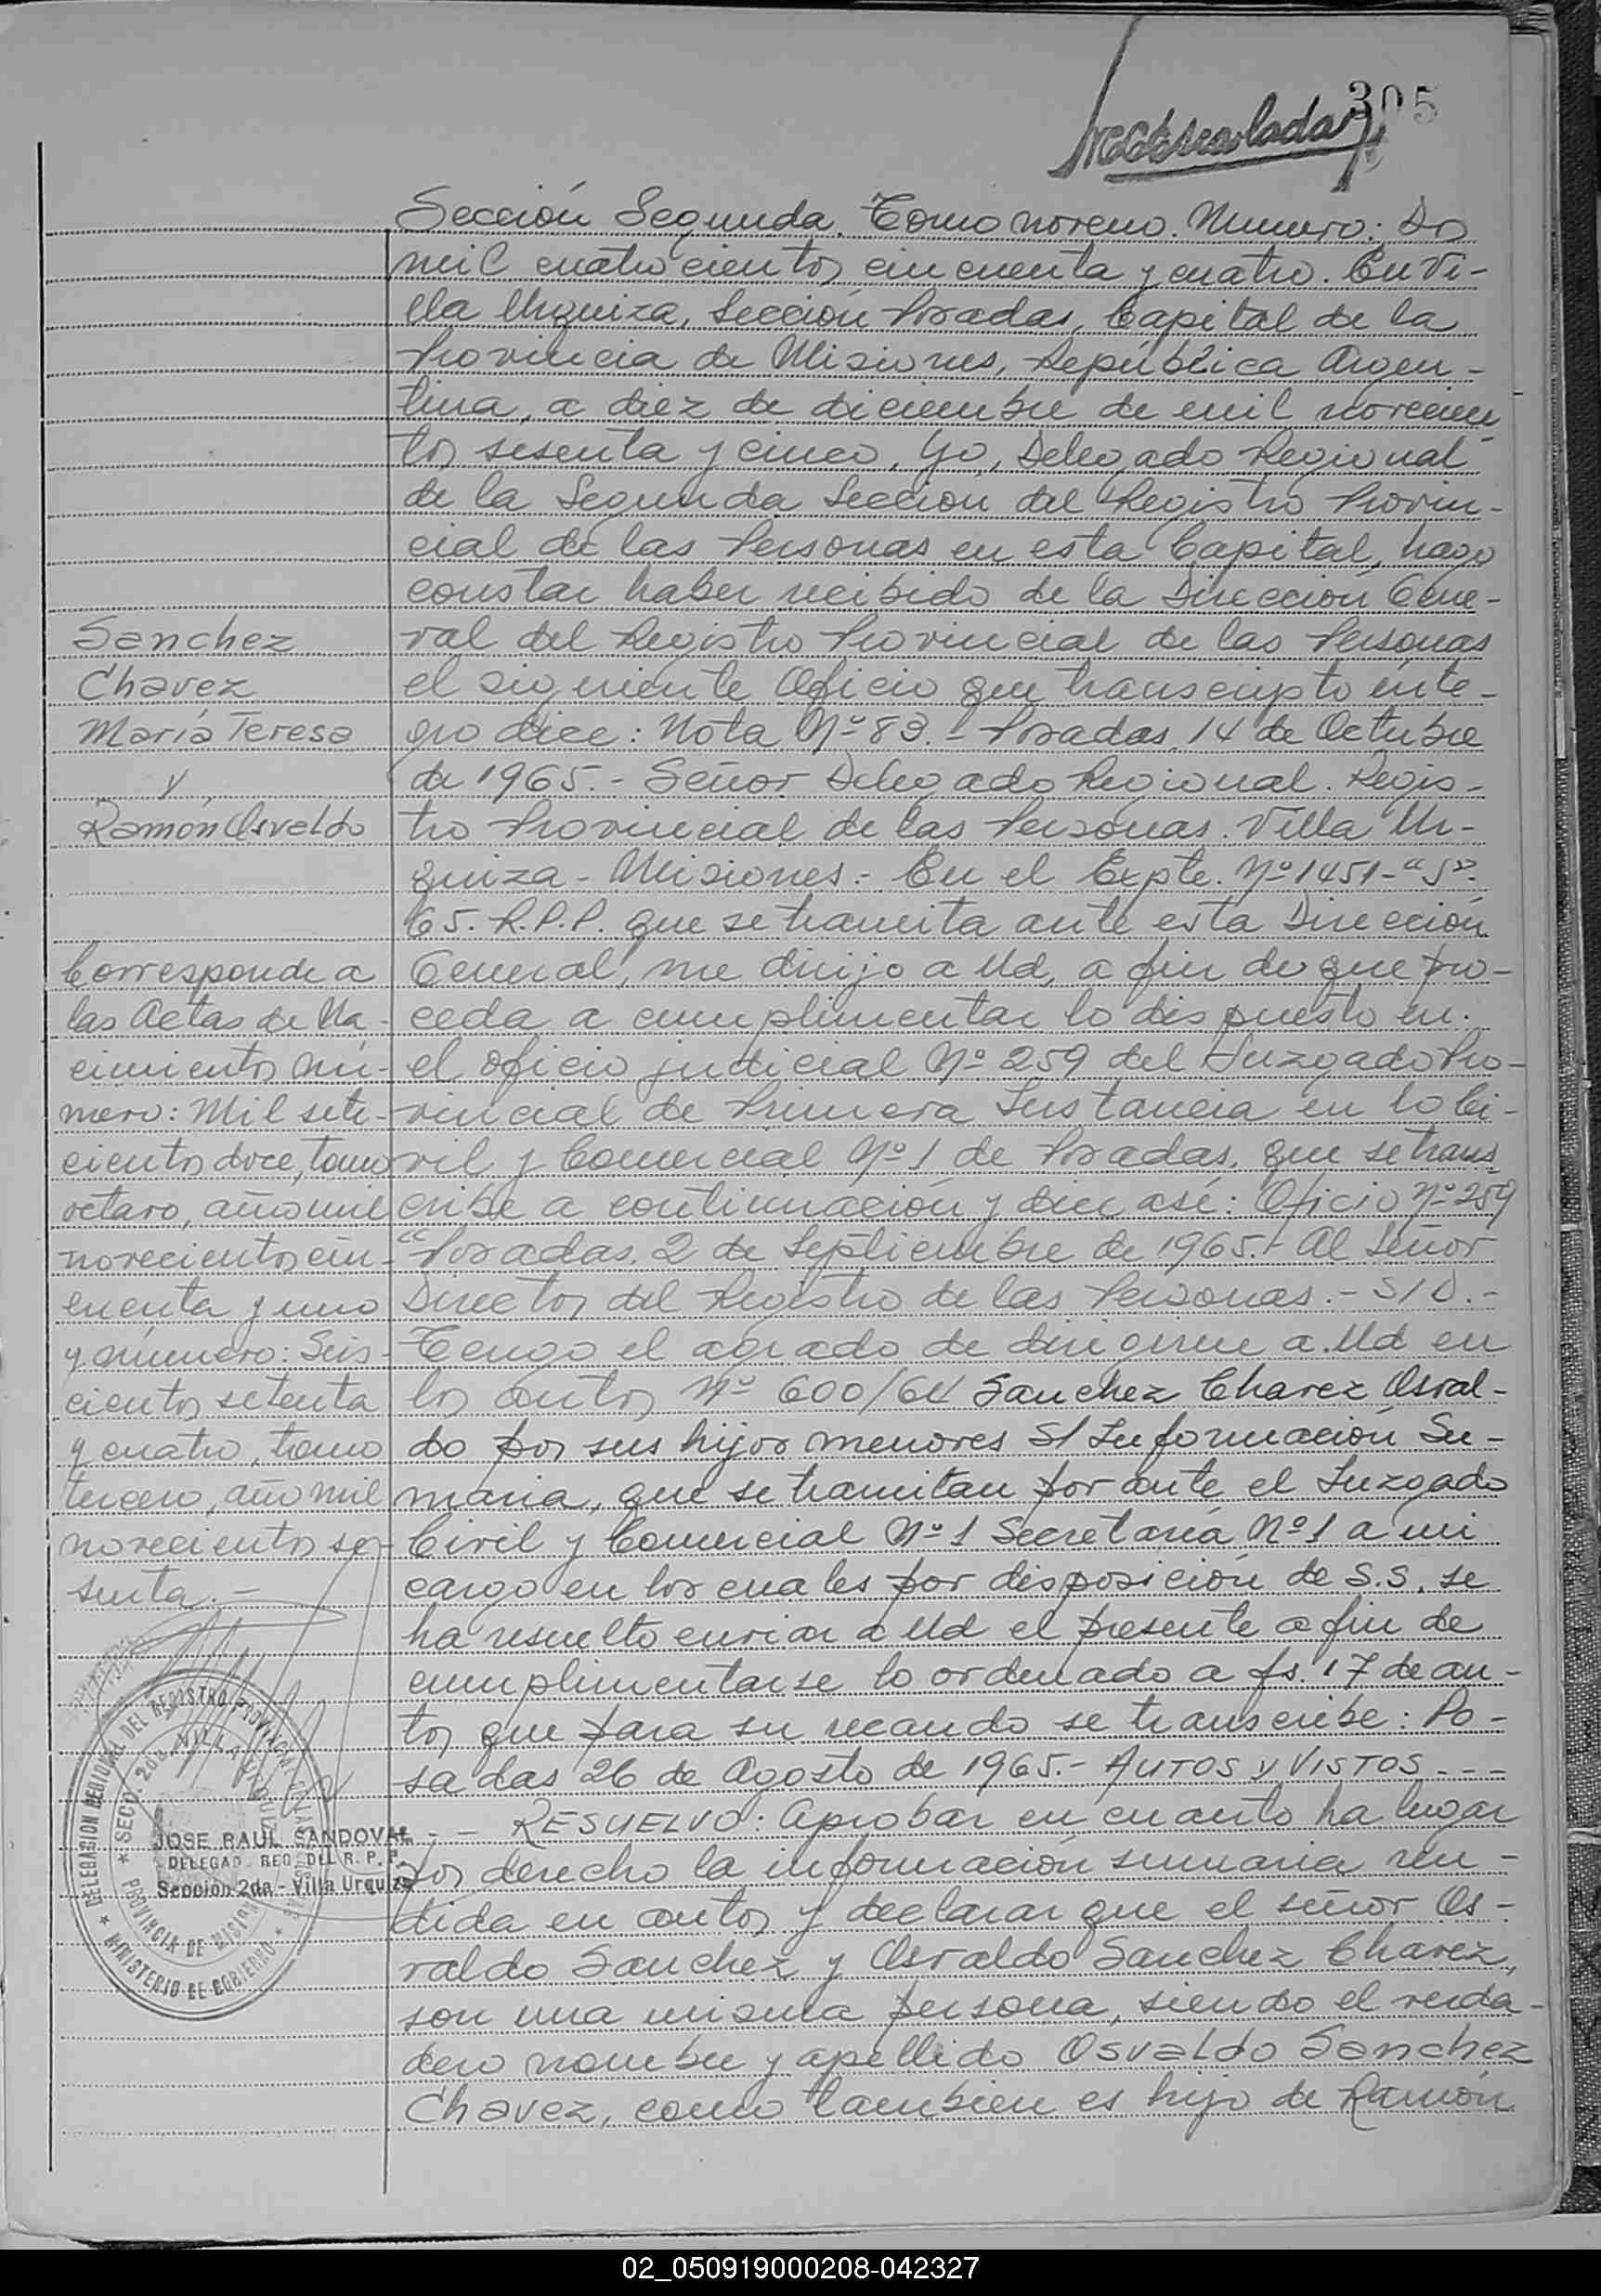 305
Sección Segunda. Tomo noveno. Numero: Dos
mil cuatrocientos cincuenta y cuatro. En Vi-
lla Urquiza, Sección Posadas, Capital de la
Provincia de Misiones, República Argen-
tina, a diez de diciembre de mil novecien
tos sesenta y cinco, Yo, Delegado Regional
de la Segunda Sección del Registro Provin-
cial de las Personas en esta Capital, hago
constar haber recibido de la Dirección Gene-
ral del Registro Provincial de las Personas
el siguiente Oficio que transcripto inte-
gro dice: Nota Nº 83.- Posadas, 14 de Octubre
de 1965.- Señor Delegado Regional. Regis-
tro Provincial de las Personas. Villa Ur-
quiza - Misiones.- En el Expte. Nº 1451-"S"-
65. R.P.P. que se tramita ante esta Dirección
General, me dirijo a Ud, a fin de que pro-
ceda a cumplimentar lo dispuesto en
el oficio judicial Nº 259 del Juzgado Pro-
vincial de Primera Instancia en lo Ci-
vil y Comercial Nº 1 de Posadas, que se trans
cribe a continuación y dice así: Oficio Nº 259
"Posadas, 2 de Septiembre de 1965.- Al Señor
Director del Registro de las Personas.- S/D.-
Tengo el agrado de dirigirme a Ud en
los autos Nº 600/64 Sanchez Chavez Osval-
do por sus hijos menores S/ Información Su-
maria, que se tramitan por ante el Juzgado
Civil y Comercial Nº 1 Secretaría Nº 1 a mi
cargo en los cuales por disposición de S.S. se
ha resuelto enviar a Ud el presente a fin de
cumplimentarse lo ordenado a fs. 17 de au-
tos que para su recaudo se transcribe: Po-
sadas 26 de Agosto de 1965.- AUTOS y VISTOS - - -
- - RESUELVO: Aprobar en cuanto ha lugar
por derecho la información sumaria ren-
dida en autos y declarar que el señor Os-
valdo Sanchez y Osvaldo Sanchez Chavez,
son una misma persona, siendo el verda-
dero nombre y apellido Osvaldo Sanchez
Chavez, como tambien es hijo de Ramón
Sanchez
Chavez
María Teresa
y
Ramón Osvaldo
Corresponde a
las Actas de Na-
cimientos nú-
mero: Mil sete-
cientos doce, tomo
octavo, año mil
novecientos cin-
cuenta y uno
y número: Seis-
cientos setenta
y cuatro, tomo
tercero, año mil
novecientos se-
senta.-
DELEGACION REGIONAL DEL REGISTRO PROVINCIAL
SECC. 2da. VILLA URQUIZA
PROVINCIA DE MISIONES
MINISTERIO DE GOBIERNO
JOSE RAUL SANDOVAL
DELEGAD. REG. DEL R. P. P.
Sección 2da - Villa Urquiza
02_050919000208-042327